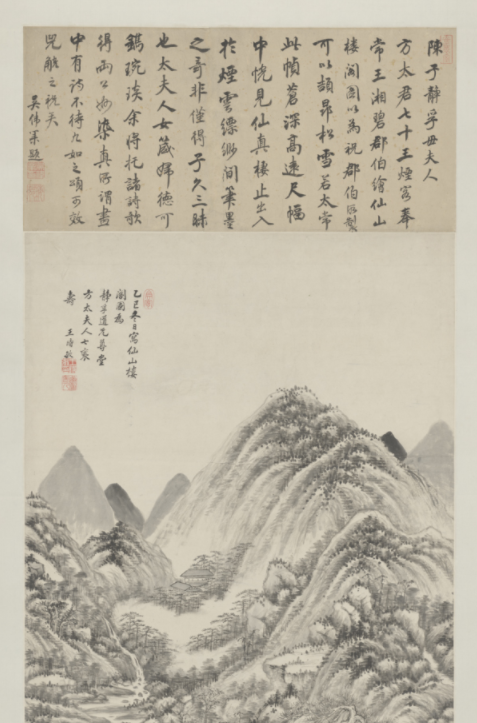 陳子靜孚母夫人
方太君七十王煙客奉
常王湘碧郡伯繪仙山
樓閣圖以為祝郡伯風
可以頡昂松雪若太常
此幀蒼深高遠尺幅
中恍見仙真樓止出入
於煙雲縹緲間筆墨
之奇非僅得子久三昧
也太夫人女箴婦德可
鐫琬琰余得托諸詩歌
得兩公妙染真所謂畫
中有詩不待九如之頌可效
兕觥之祝矣
吳偉業題
乙巳冬日寫仙山樓
閣圖為
靜孚道兄尊堂
方太夫人七袠
壽
王時敏